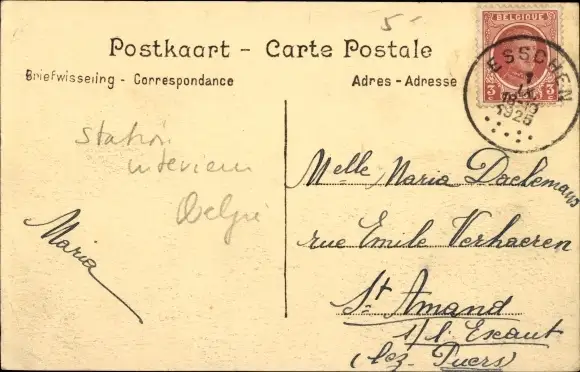 5-
BELGIQUE
3 3
ESSCHEN
18-19
1926
Postkaart - Carte Postale
Briefwisseling - Correspondance
Adres - Adresse
Station
interieur
België
Maria
Melle Maria Daelemans
rue Emile Verhaeren
St Amand
s/l. Escaut
(lez. Puers)